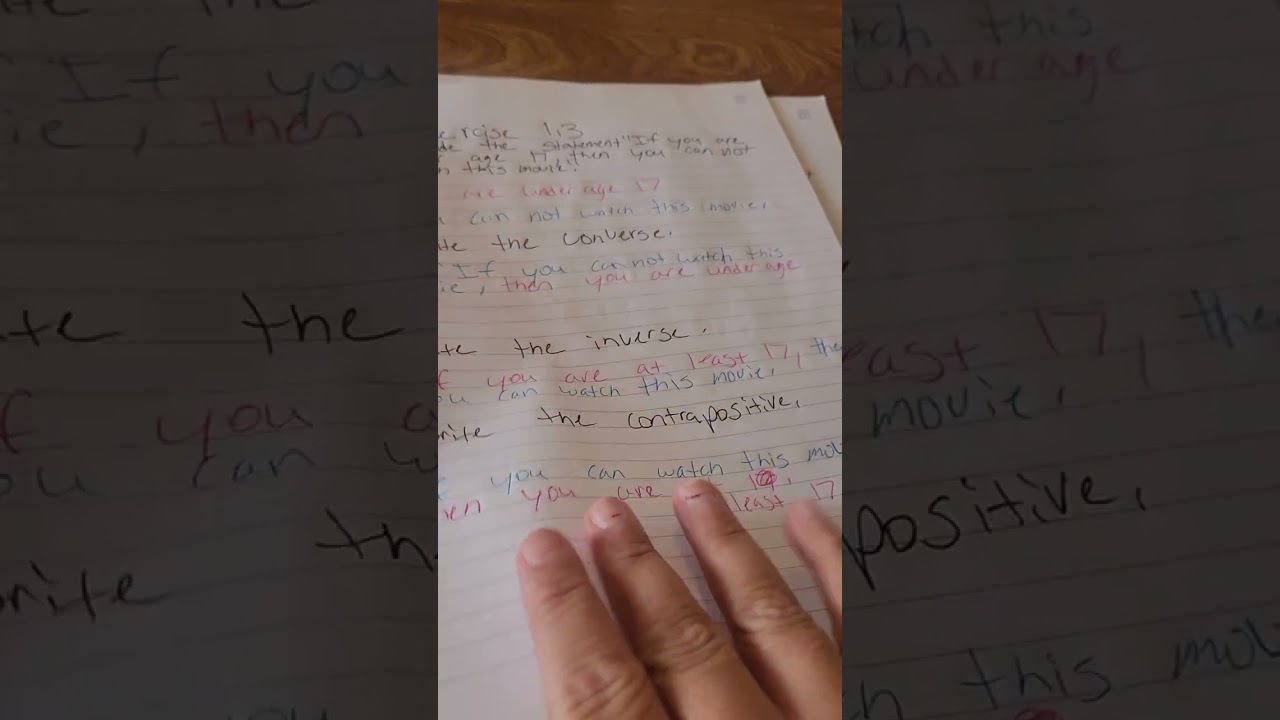 ercise 1,3
de the statement "If you are
age 17, then you can not
this movie."
are under age 17
can not watch this movie.
te the converse.
If you cannot watch this
ie, then you are under age
te the inverse.
f you are at least 17, the
ou can watch this movie.
rite the contrapositive.
you can watch this mov
hen you are
least 17